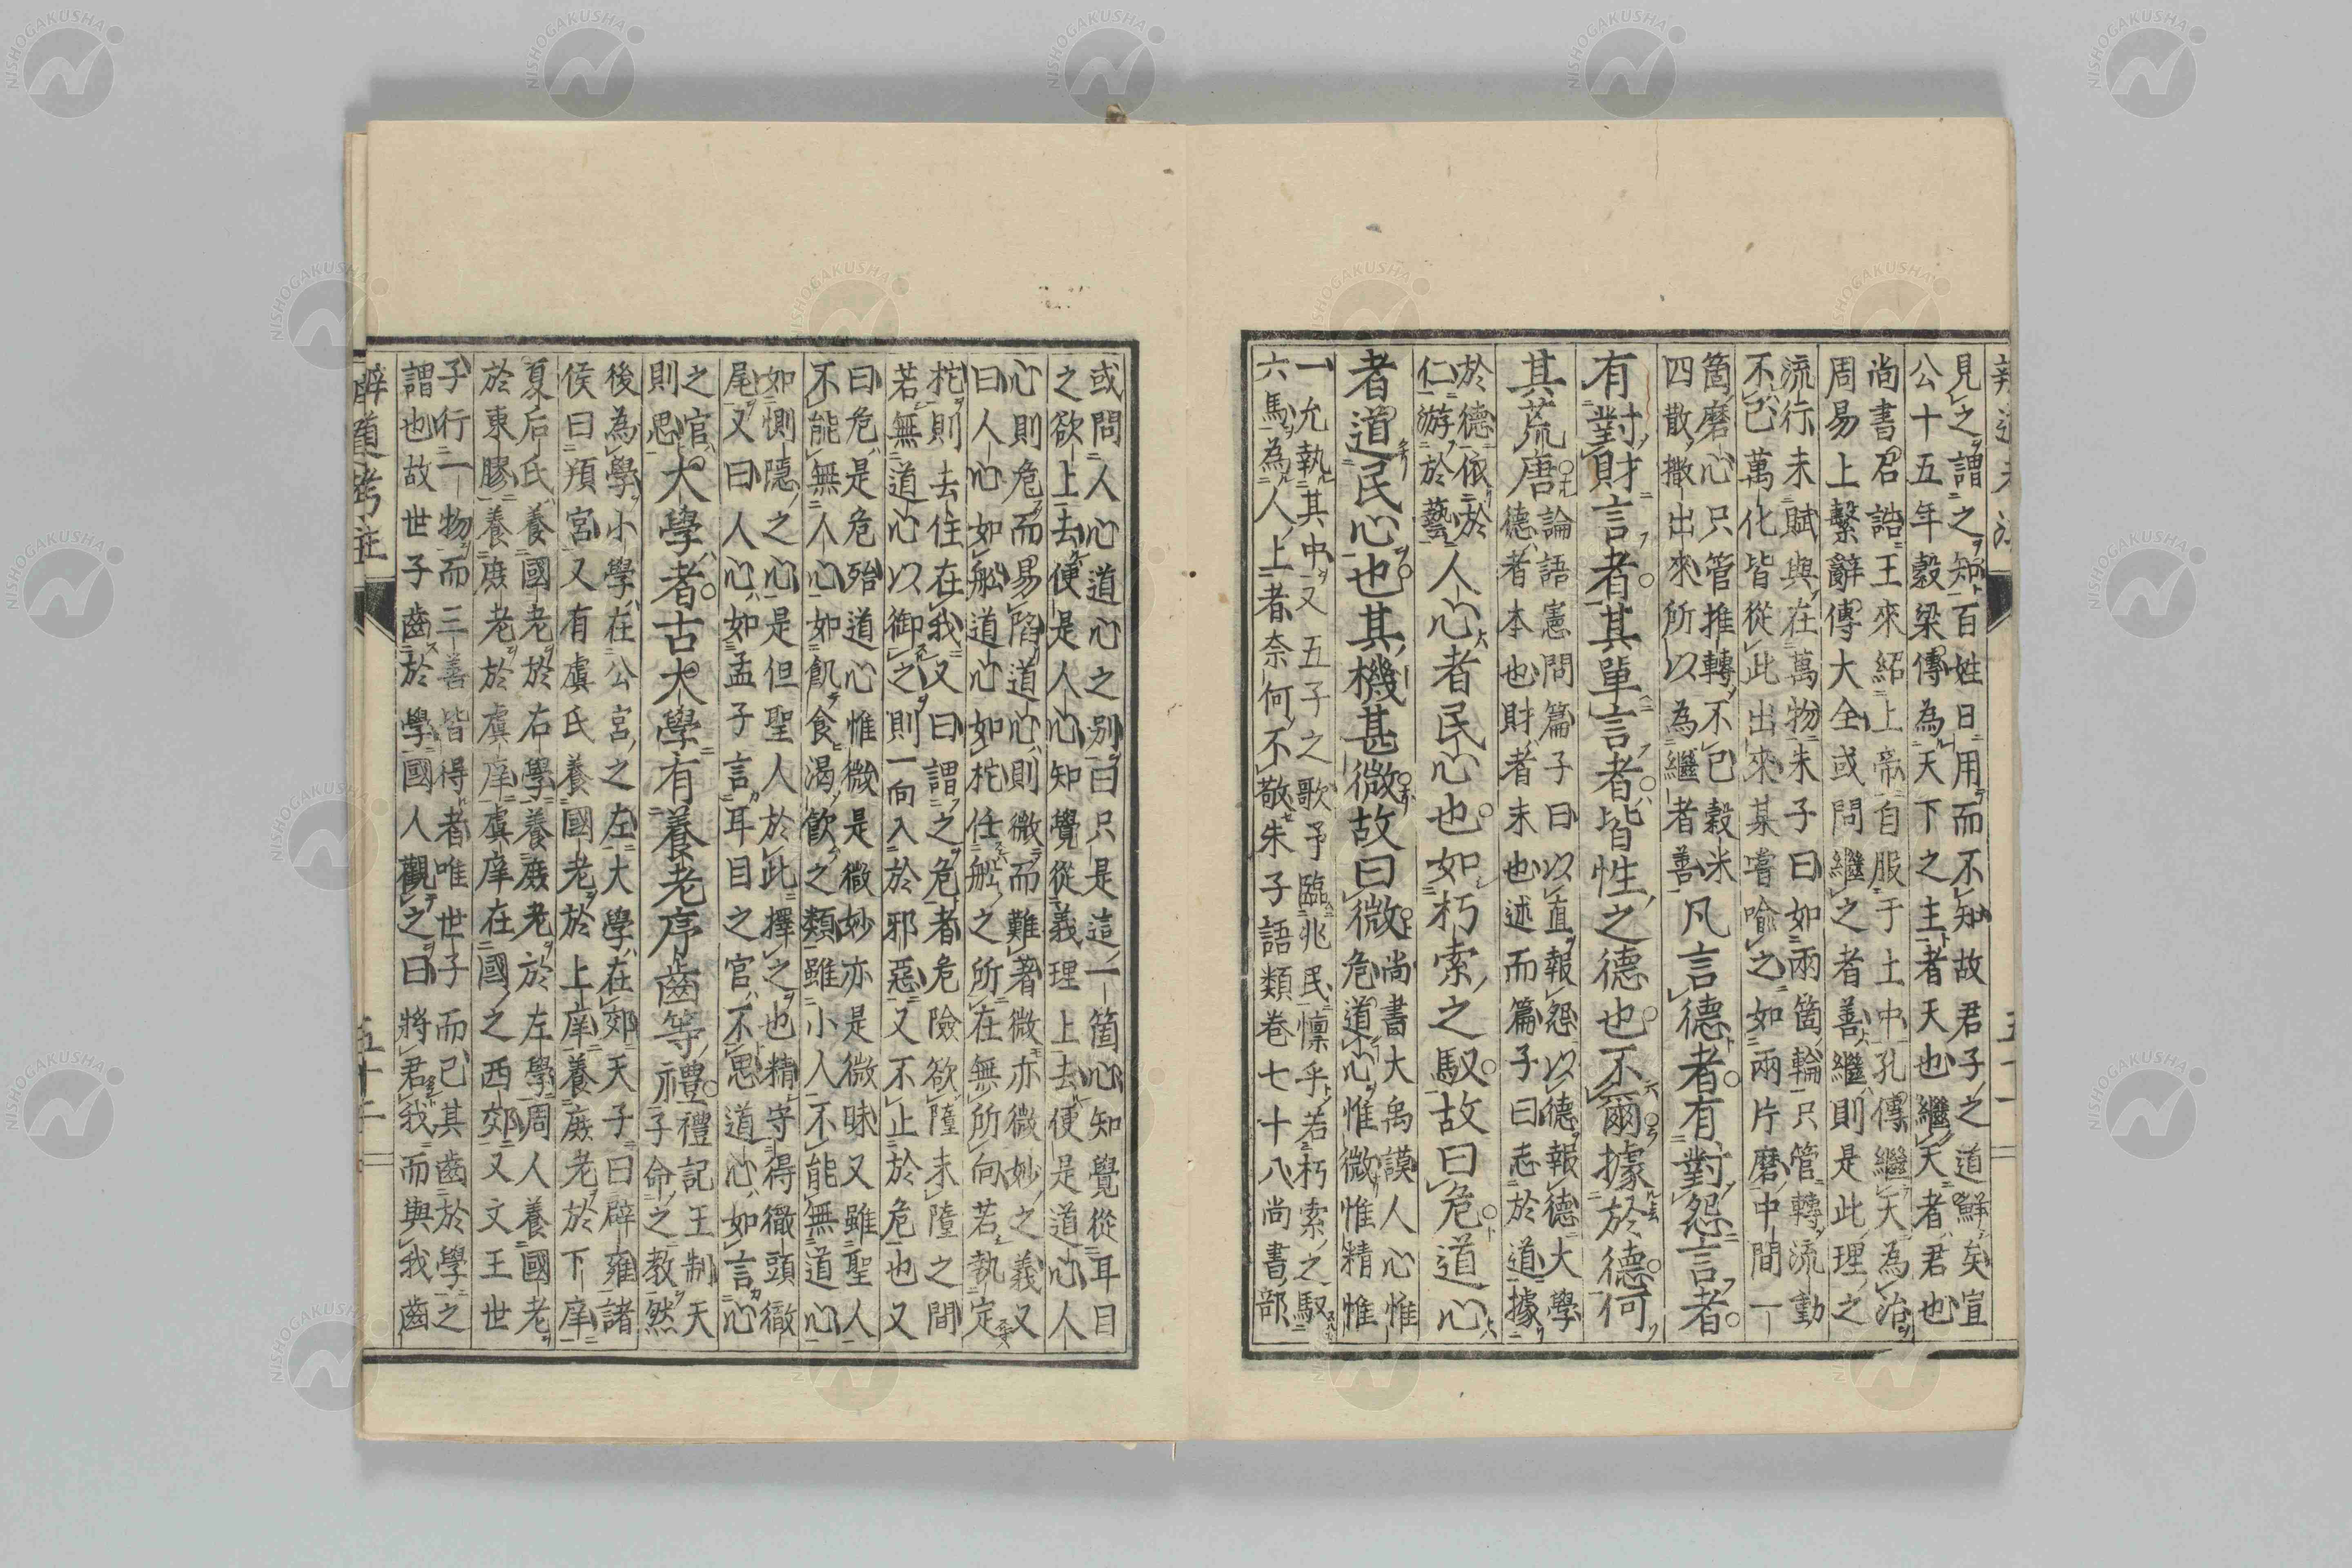 見之謂之知百姓日用而不知故君子之道鮮矣宣
公十五年穀梁傳為天下之主者天也繼天者君也
尚書召誥王來紹上帝自服于土中孔傳繼天為治
周易上繫辭傳大全或問繼之者善繼則是此理之
流行未賦與在萬物朱子曰如兩箇輪只管轉流動
不已萬化皆從此出來某嘗喻之如兩片磨中間一
箇磨心只管推轉不已穀米
四散撒出來所以為繼者善
凡言德者有對怨言者
有對財言者其單言者皆性之德也不爾據於德何
其荒唐
論語憲問篇子曰以直報怨以德報德大學
德者本也財者末也述而篇子曰志於道據
於德依於
仁游於藝
人心者民心也如朽索之馭故曰危道心
者道民心也其機甚微故曰微
尚書大禹謨人心惟
危道心惟微惟精惟
一允執其中又五子之歌予臨兆民懍乎若朽索之馭
六馬為人上者奈何不敬朱子語類卷七十八尚書部
或問人心道心之別曰只是這一箇心知覺從耳目
之欲上去便是人心知覺從義理上去便是道心人
心則危而易陷道心則微而難著微亦微妙之義又
曰人心如船道心如柁任船之所在無所向若執定
柁則去住在我又曰謂之危者危險欲墮未墮之間
若無道心以御之則一向入於邪惡又不止於危也又
曰危是危殆道心惟微是微妙亦是微昧又雖聖人
不能無人心如飢食渴飲之類雖小人不能無道心
如惻隱之心是但聖人於此擇之也精守得徹頭徹
尾又曰人心如孟子言耳目之官不思道心如言心
之官
則思
大學者古大學有養老序齒等禮
禮記王制天
子命之教然
後為學小學在公宮之左大學在郊天子曰辟雍諸
侯曰頖宮又有虞氏養國老於上庠養庶老於下庠
夏后氏養國老於右學養庶老於左學周人養國老
於東膠養庶老於虞庠虞庠在國之西郊又文王世
子行一物而三善皆得者唯世子而已其齒於學之
謂也故世子齒於學國人觀之曰將君我而與我齒
辨道考註
五十二